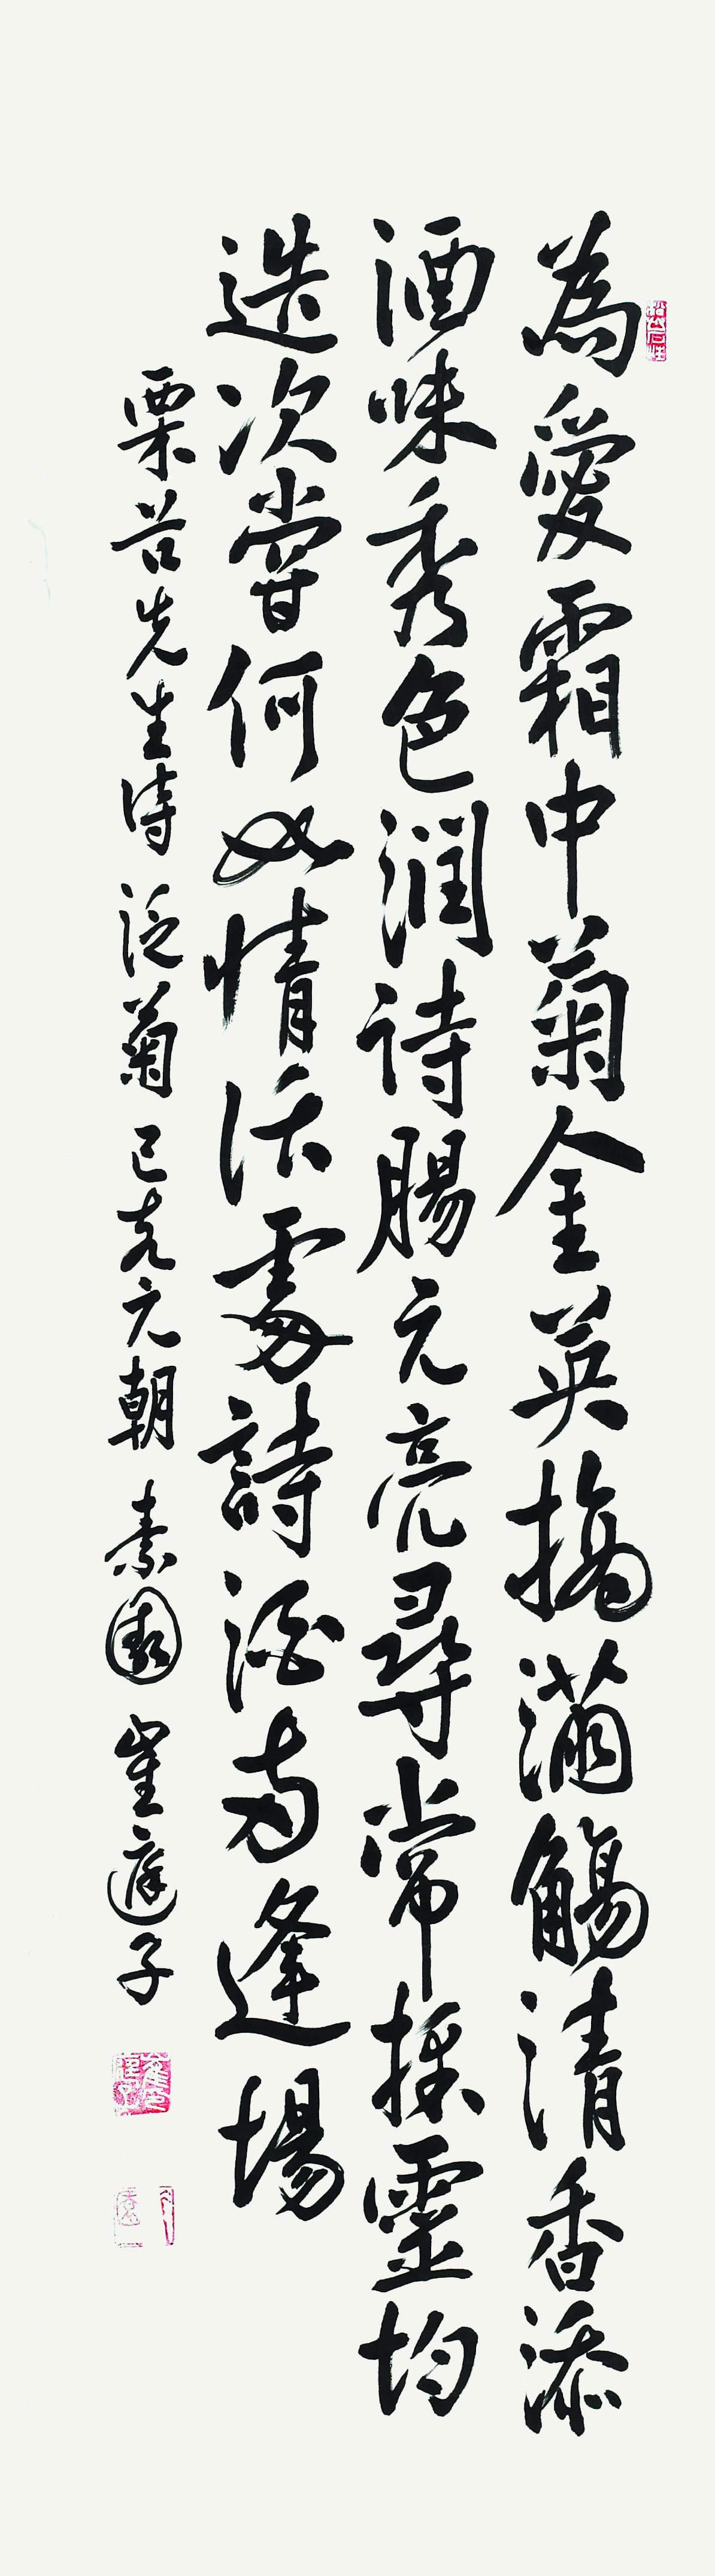 為愛霜中菊金英摘滿觴清香添
酒味秀色潤詩腸元亮尋常採靈均
造次嘗何如情話處詩酒兩逢場
栗谷先生詩 泛菊 己亥元朝 素園 崔庭子